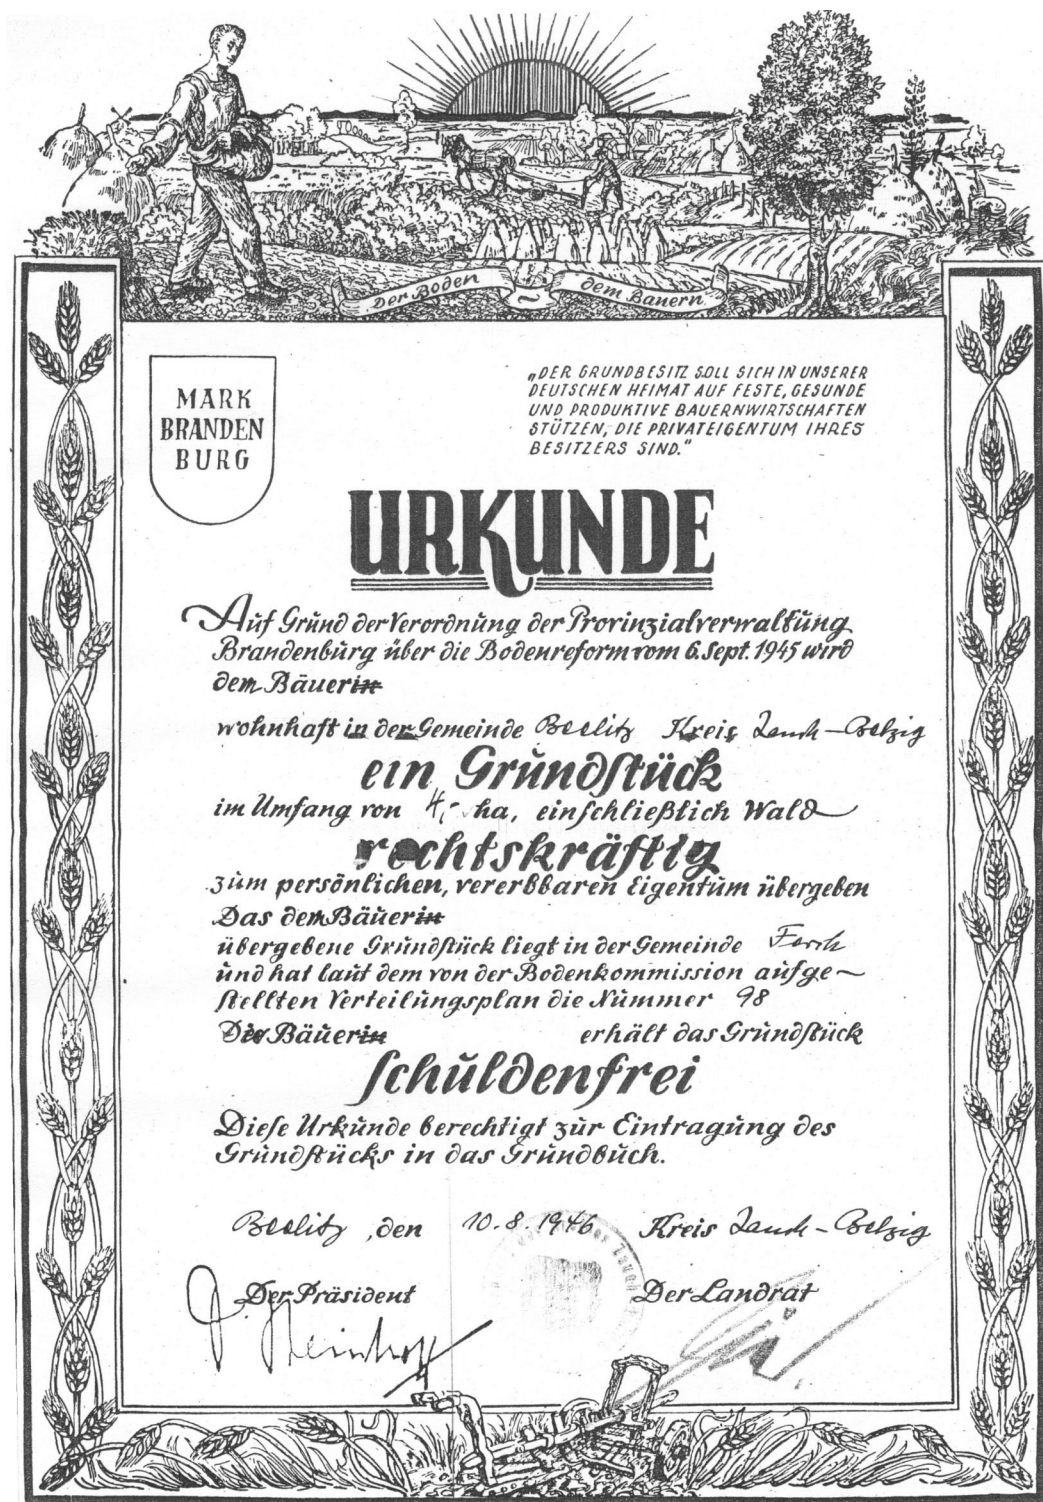 Der Boden dem Bauern
MARK
BRANDEN
BURG
„DER GRUNDBESITZ SOLL SICH IN UNSERER
DEUTSCHEN HEIMAT AUF FESTE, GESUNDE
UND PRODUKTIVE BAUERNWIRTSCHAFTEN
STÜTZEN, DIE PRIVATEIGENTUM IHRES
BESITZERS SIND."
URKUNDE
Auf Grund der Verordnung der Provinzialverwaltung
Brandenburg über die Bodenreform vom 6. Sept. 1945 wird
dem Bäuerin
wohnhaft in der Gemeinde Beelitz Kreis Zauch-Belzig
ein Grundstück
im Umfang von 4,- ha, einschließlich Wald
rechtskräftig
zum persönlichen, vererbbaren Eigentum übergeben
Das dem Bäuerin
übergebene Grundstück liegt in der Gemeinde Ferch
und hat laut dem von der Bodenkommission aufge-
stellten Verteilungsplan die Nummer 98
Der Bäuerin erhält das Grundstück
schuldenfrei
Diese Urkunde berechtigt zur Eintragung des
Grundstücks in das Grundbuch.
Beelitz, den 10.8.1946 Kreis Zauch-Belzig
Der Präsident Der Landrat
Steinhoff